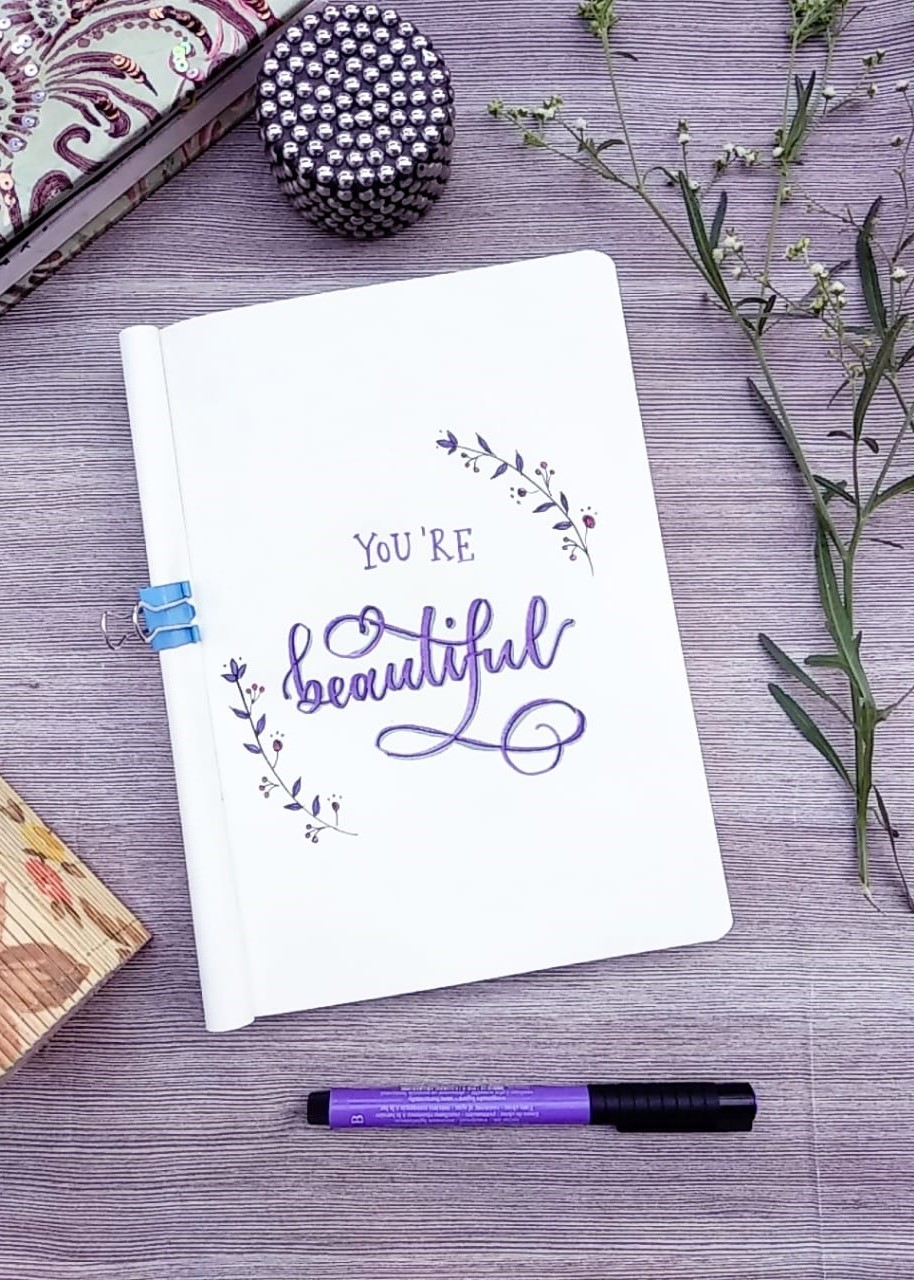 YOU'RE
beautiful
B